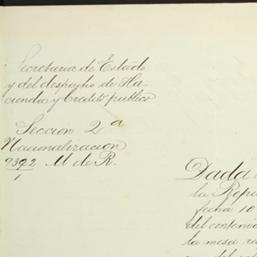 Secretaria de Estado
y del despacho de Ha-
cienda y Credito publico
Seccion 2a
Nacionalizacion
9392 M de R.
1
Dada
la Repú
fecha 10
del conteni
la mesa